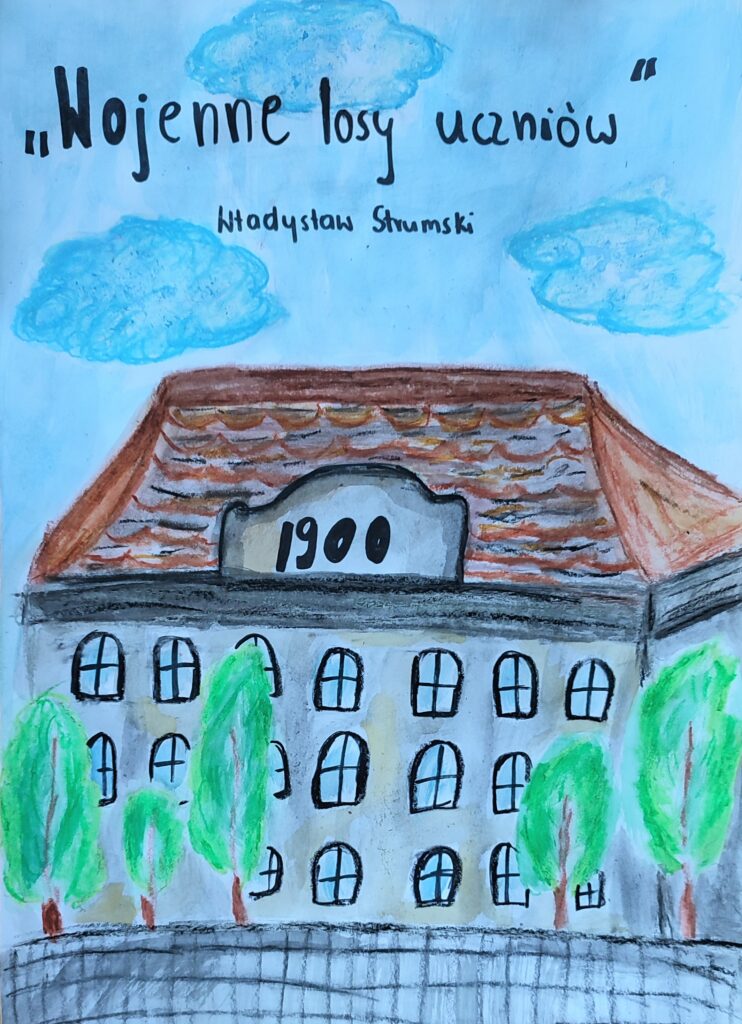 „Wojenne losy uczniów"
Władysław Strumski
1900